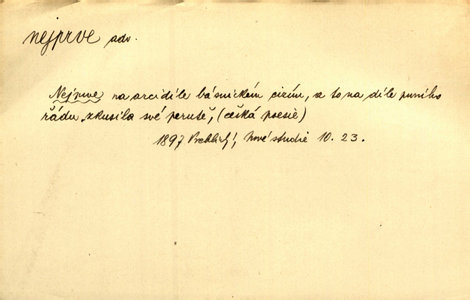 nejprve adv.
Nejprve na arcidíle básnickém cizím, a to na díle prvního
řádu zkusila své perutě, (česká poesie)
1897 Vrchlický, Nové studie 10. 23.